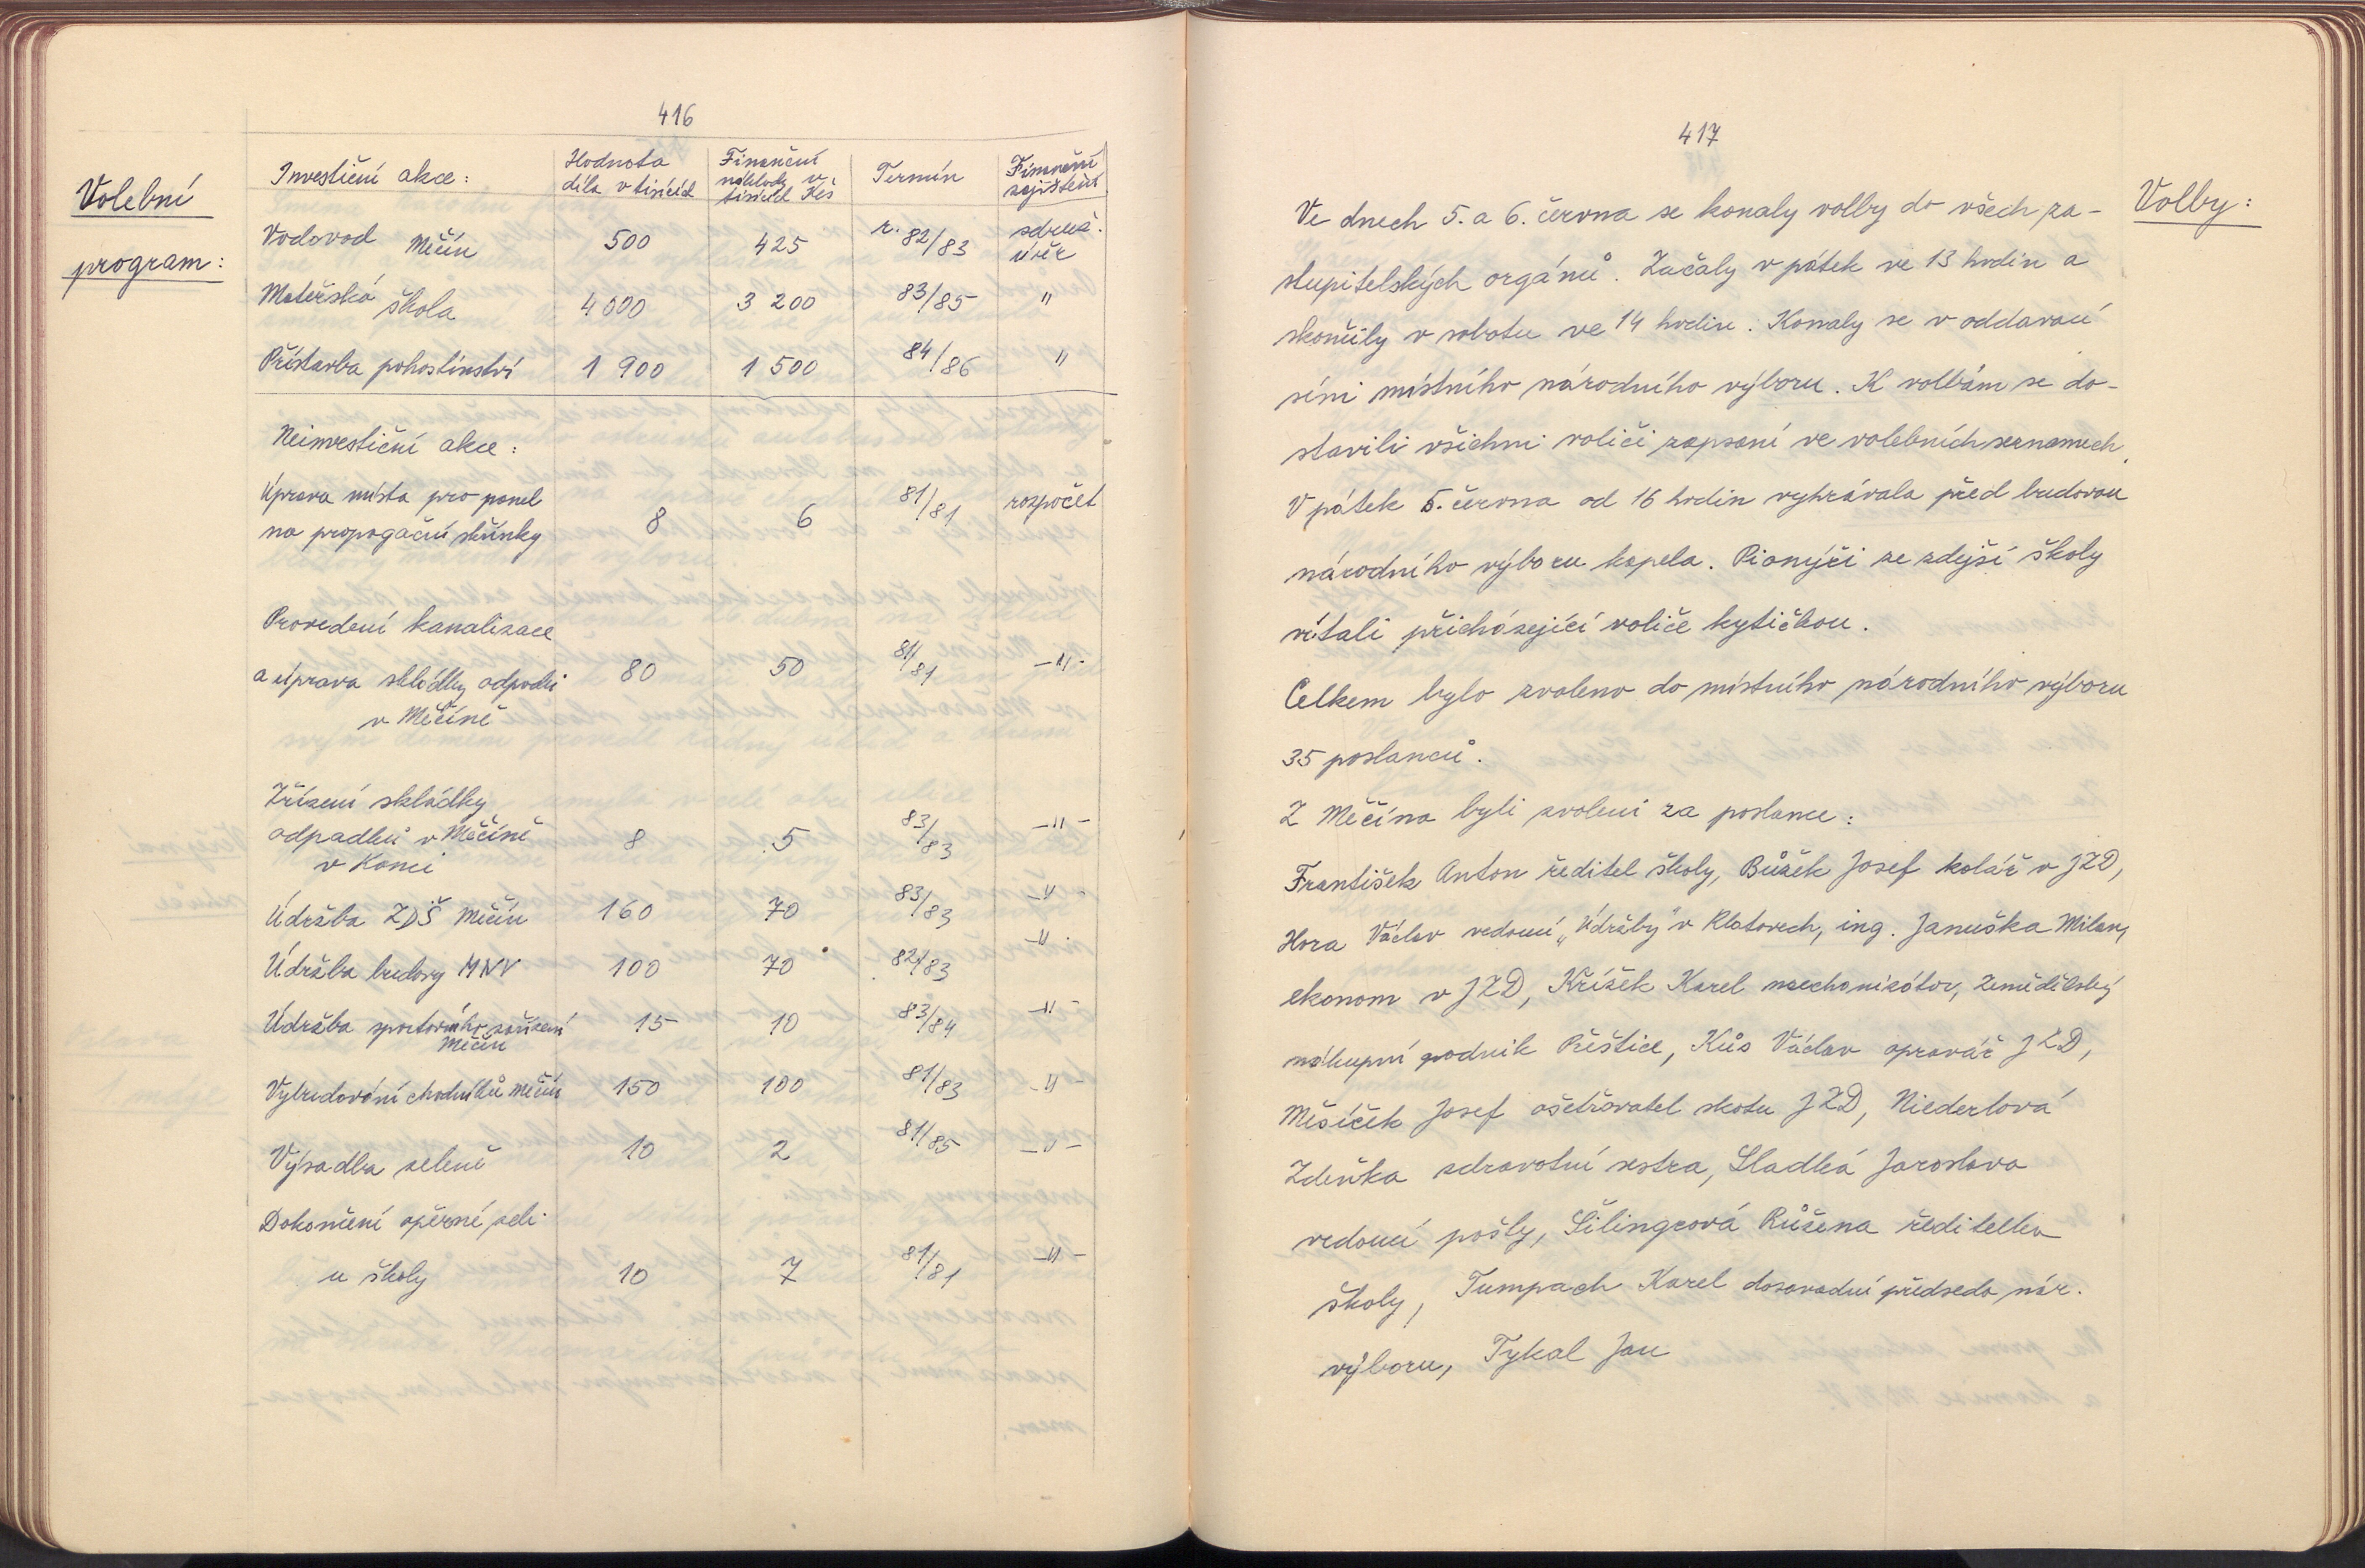 416
Volební
program:
Investiční akce: Hodnota díla v tisících Finanční náklady v tisících Kčs Termín Finanční zajištění
Vodovod Měčín 500 425 r. 82/83 sdruž. úvěr
Mateřská škola 4 000 3 200 83/85 "
Přístavba pohostinství 1 900 1 500 84/86 "
Neinvestiční akce:
Úprava místa pro panel
na propagační skřínky 8 6 81/81 rozpočet
Provedení kanalizace
a úprava skládky odpadů 80 50 81/81 -"-
v Měčíně
Zřízení skládky
odpadků v Měčíně 8 5 83/83 -"-
v Konci
Údržba ZDŠ Měčín 160 70 83/83 -"-
Údržba budovy MNV 100 70 82/83 -"-
Údržba sportovního zařízení 15 10 83/84 -"-
Měčín
Vybudování chodníků Měčín 150 100 81/83 -"-
Výsadba zeleně 10 2 81/85 -"-
Dokončení opěrné zdi
u školy 10 7 81/81 -"-
417
Volby:
Ve dnech 5. a 6. června se konaly volby do všech za-
stupitelských orgánů. Začaly v pátek ve 13 hodin a
skončily v sobotu ve 14 hodin. Konaly se v oddavací
síni místního národního výboru. K volbám se do-
stavili všichni voliči zapsaní ve volebních seznamech.
V pátek 5. června od 16 hodin vyhrávala před budovou
národního výboru kapela. Pionýři ze zdejší školy
vítali přicházející voliče kytičkou.
Celkem bylo zvoleno do místního národního výboru
35 poslanců.
Z Měčína byli zvoleni za poslance:
František Anton ředitel školy, Bůžek Josef kolář v JZD,
Hora Václav vedoucí „Údržby" v Klatovech, ing. Januška Milan,
ekonom v JZD, Křížek Karel mechanizátor, Zemědělský
nákupní podnik Přeštice, Kůs Václav opravář JZD,
Měsíček Josef ošetřovatel skotu JZD, Niederlová
Zdeňka zdravotní sestra, Sladká Jaroslava
vedoucí pošty, Šilingrová Růžena ředitelka
školy, Tumpach Karel dosavadní předseda nár.
výboru, Tykal Jan